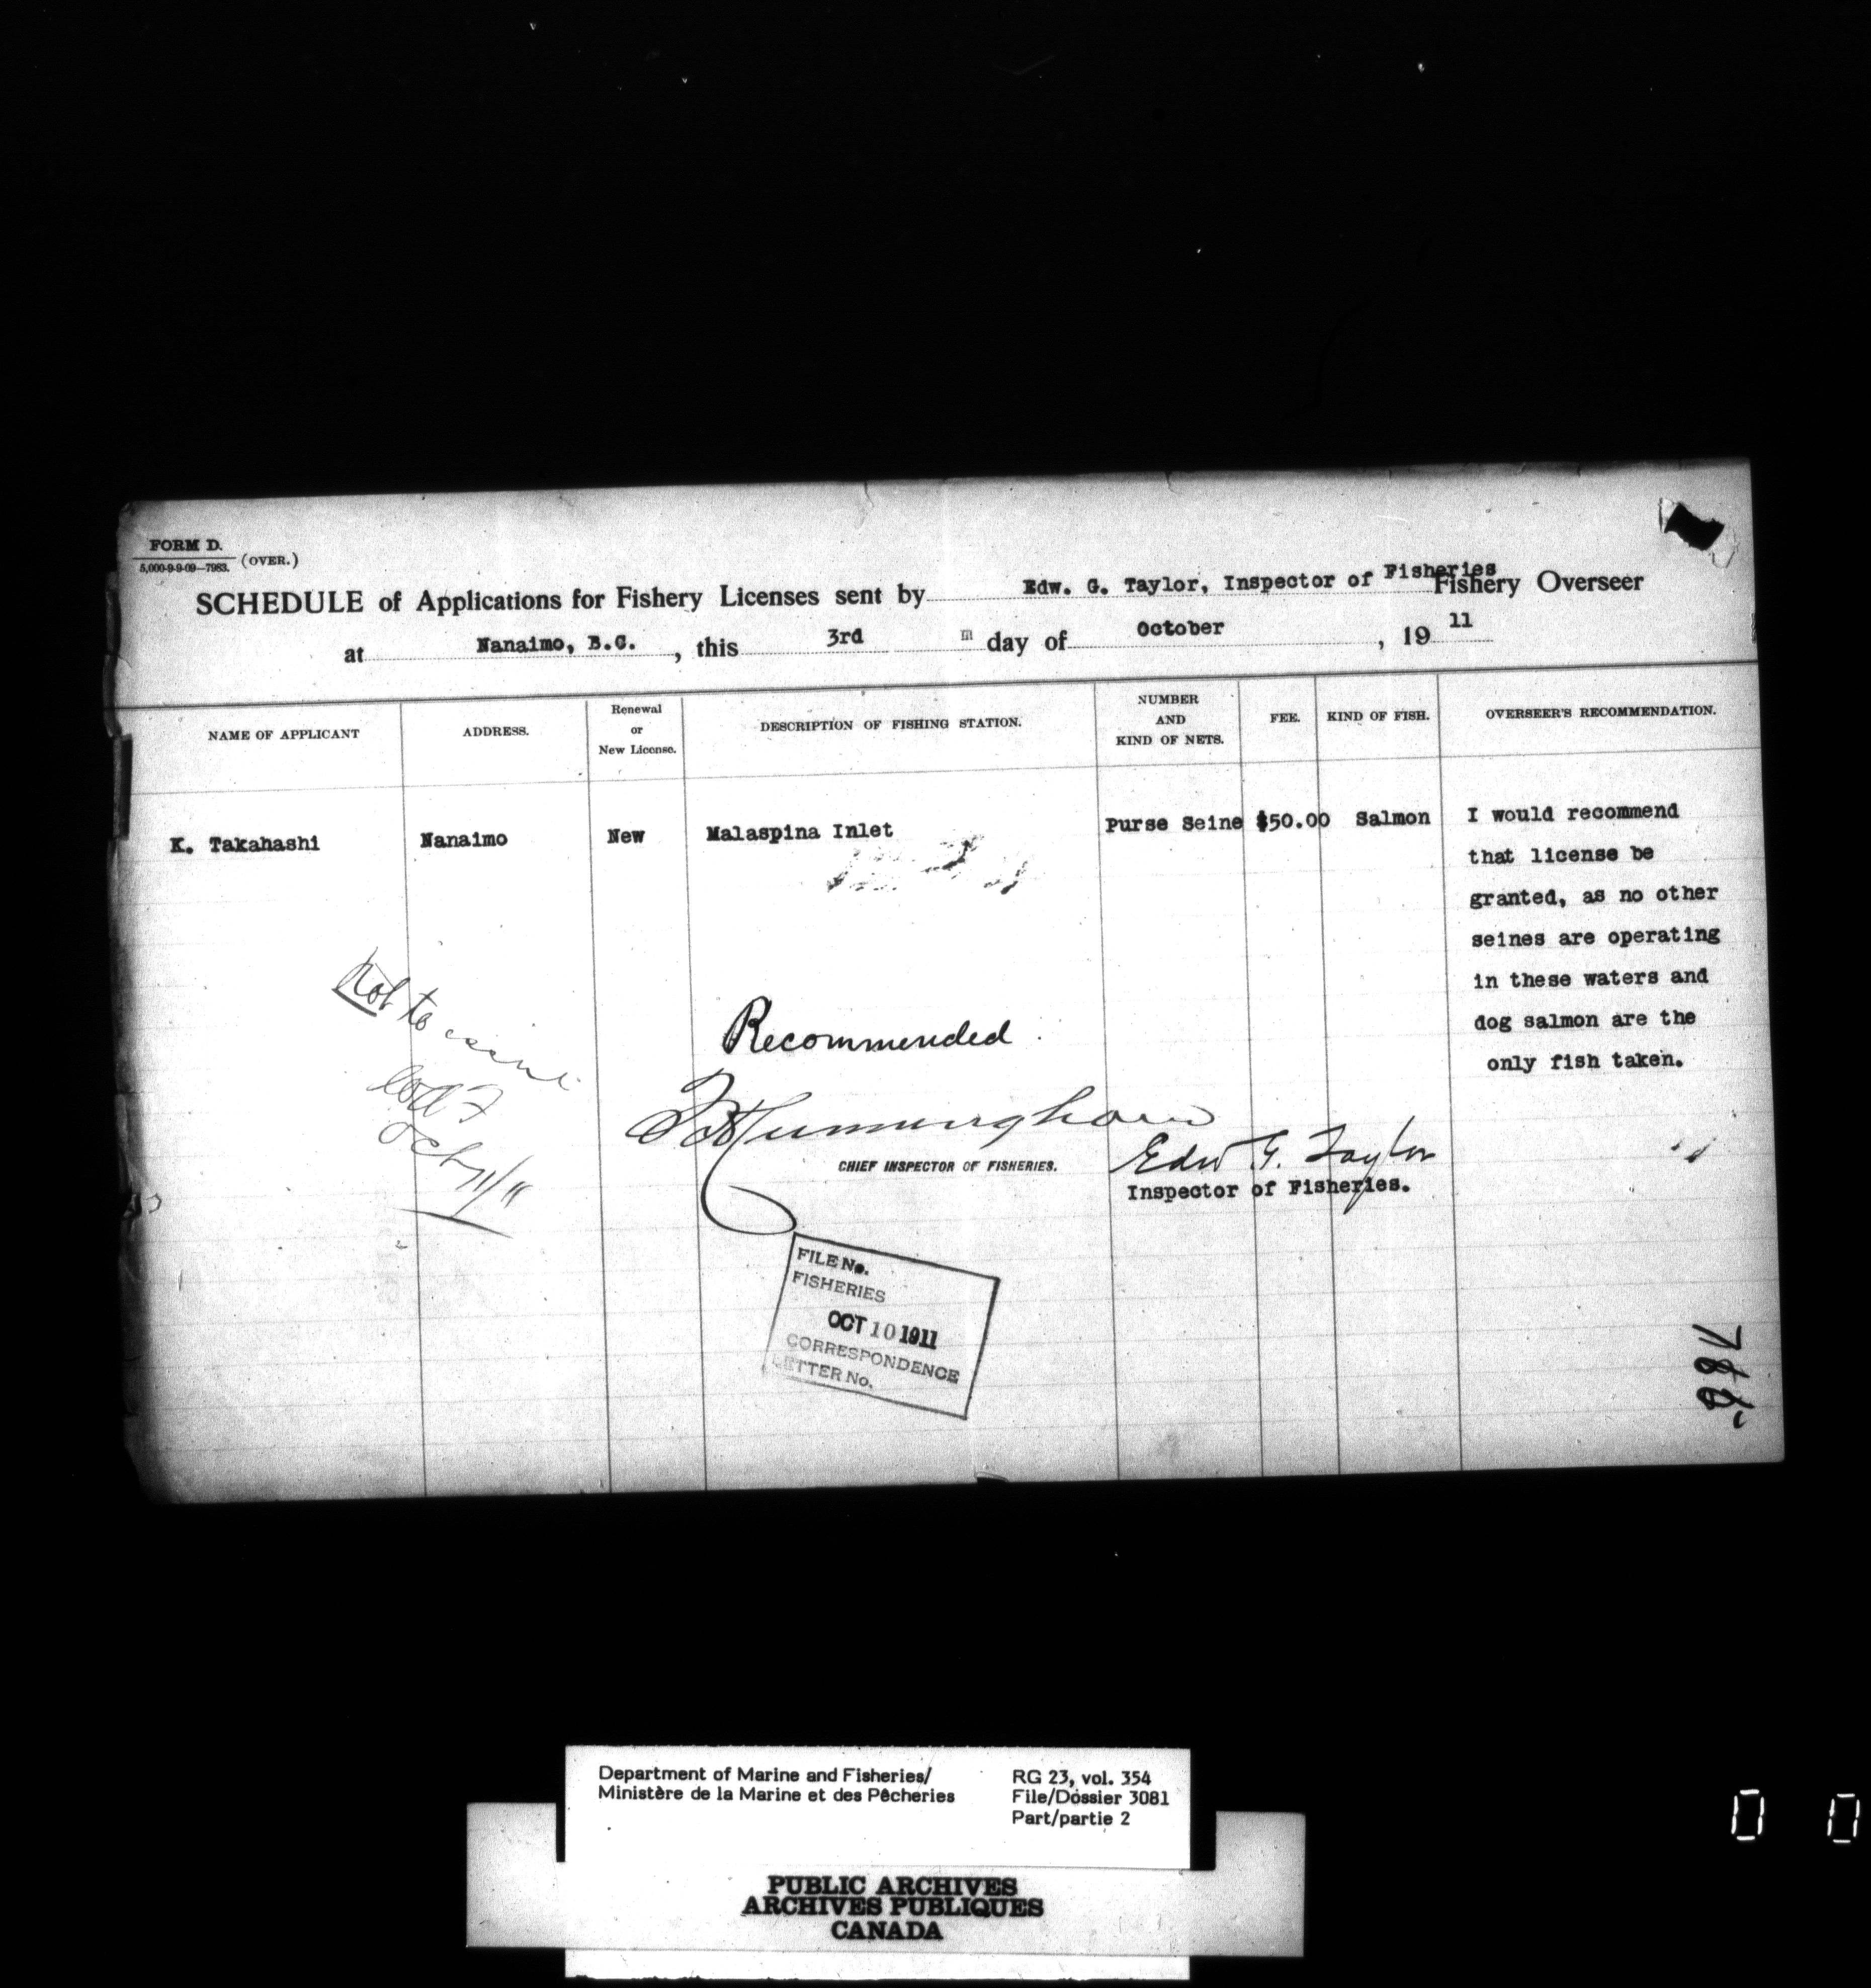 FORM D.
5,000-9-9-09—7983.
(OVER.)
SCHEDULE of Applications for Fishery Licenses sent by Edw. G. Taylor, Inspector of Fisheries Fishery Overseer
at Nanaimo, B.C. , this 3rd day of October , 19 11
NAME OF APPLICANT
ADDRESS.
Renewal
or
New License.
DESCRIPTION OF FISHING STATION.
NUMBER
AND
KIND OF NETS.
FEE.
KIND OF FISH.
OVERSEER'S RECOMMENDATION.
K. Takahashi
Nanaimo
New
Malaspina Inlet
Purse Seine
$50.00
Salmon
I would recommend
that license be
granted, as no other
seines are operating
in these waters and
dog salmon are the
only fish taken.
Not to issue
Oct 7/11
Recommended
CHIEF INSPECTOR OF FISHERIES.
Edw G. Taylor
Inspector of Fisheries.
FILE No.
FISHERIES
OCT 10 1911
CORRESPONDENCE
LETTER No.
Department of Marine and Fisheries/
Ministère de la Marine et des Pêcheries
RG 23, vol. 354
File/Dossier 3081
Part/partie 2
PUBLIC ARCHIVES
ARCHIVES PUBLIQUES
CANADA
0 0